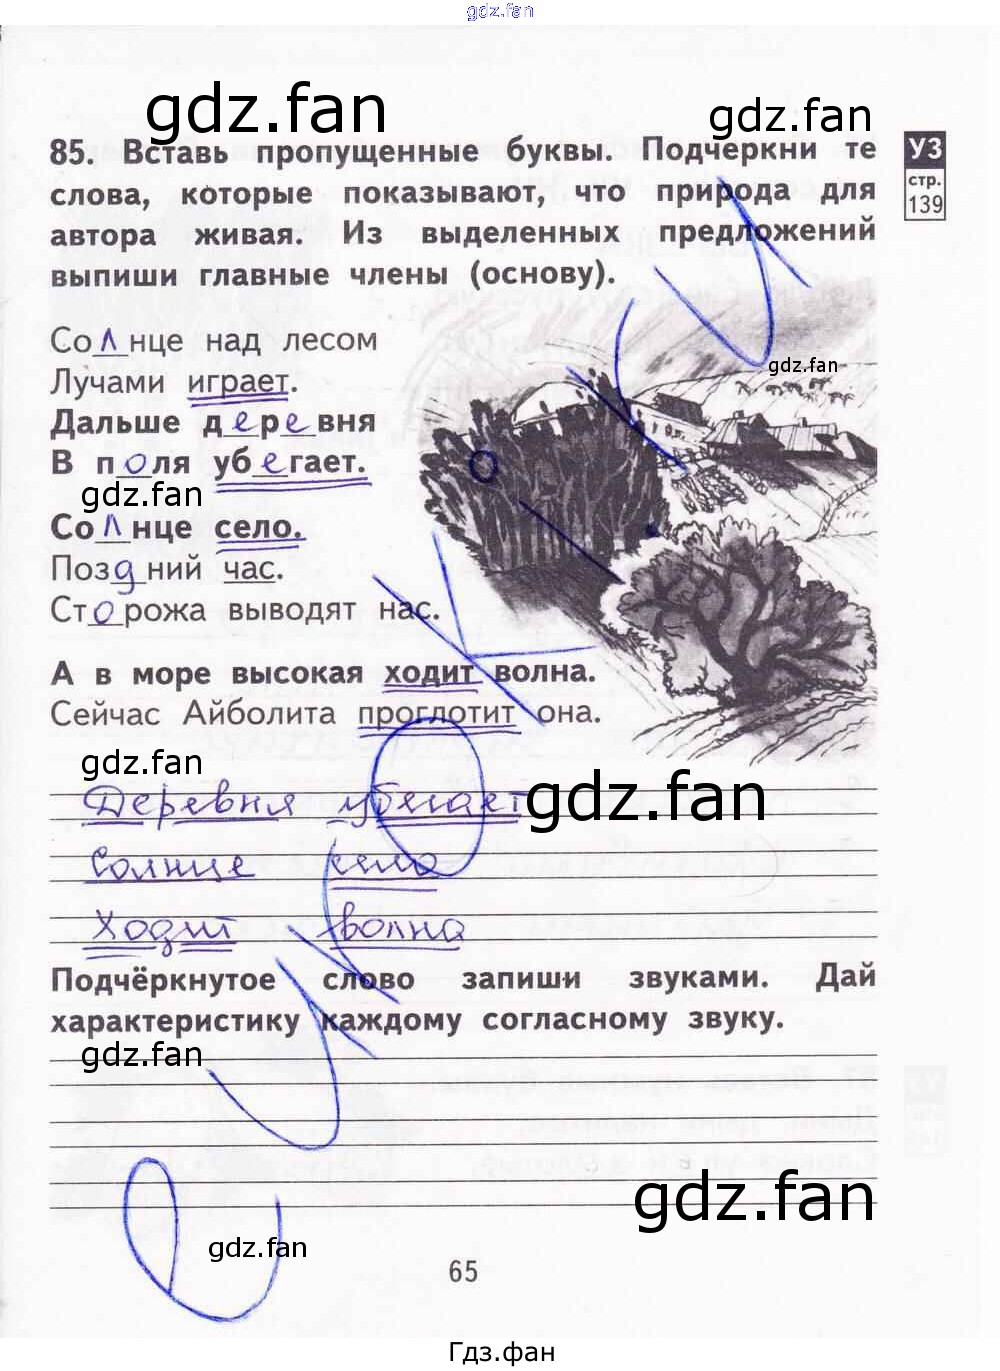 gdz.fan
gdz.fan
gdz.fan
85. Вставь пропущенные буквы. Подчеркни те
слова, которые показывают, что природа для
автора живая. Из выделенных предложений
выпиши главные члены (основу).
УЗ
стр.
139
Солнце над лесом
Лучами играет.
gdz.fan
Дальше деревня
В поля убегает.
gdz.fan
Солнце село.
Поздний час.
Сторожа выводят нас.
А в море высокая ходит волна.
Сейчас Айболита проглотит она.
gdz.fan
Деревня убегает
gdz.fan
солнце село
Ходит волна
Подчёркнутое слово запиши звуками. Дай
характеристику каждому согласному звуку.
gdz.fan
gdz.fan
gdz.fan
65
Гдз.фан